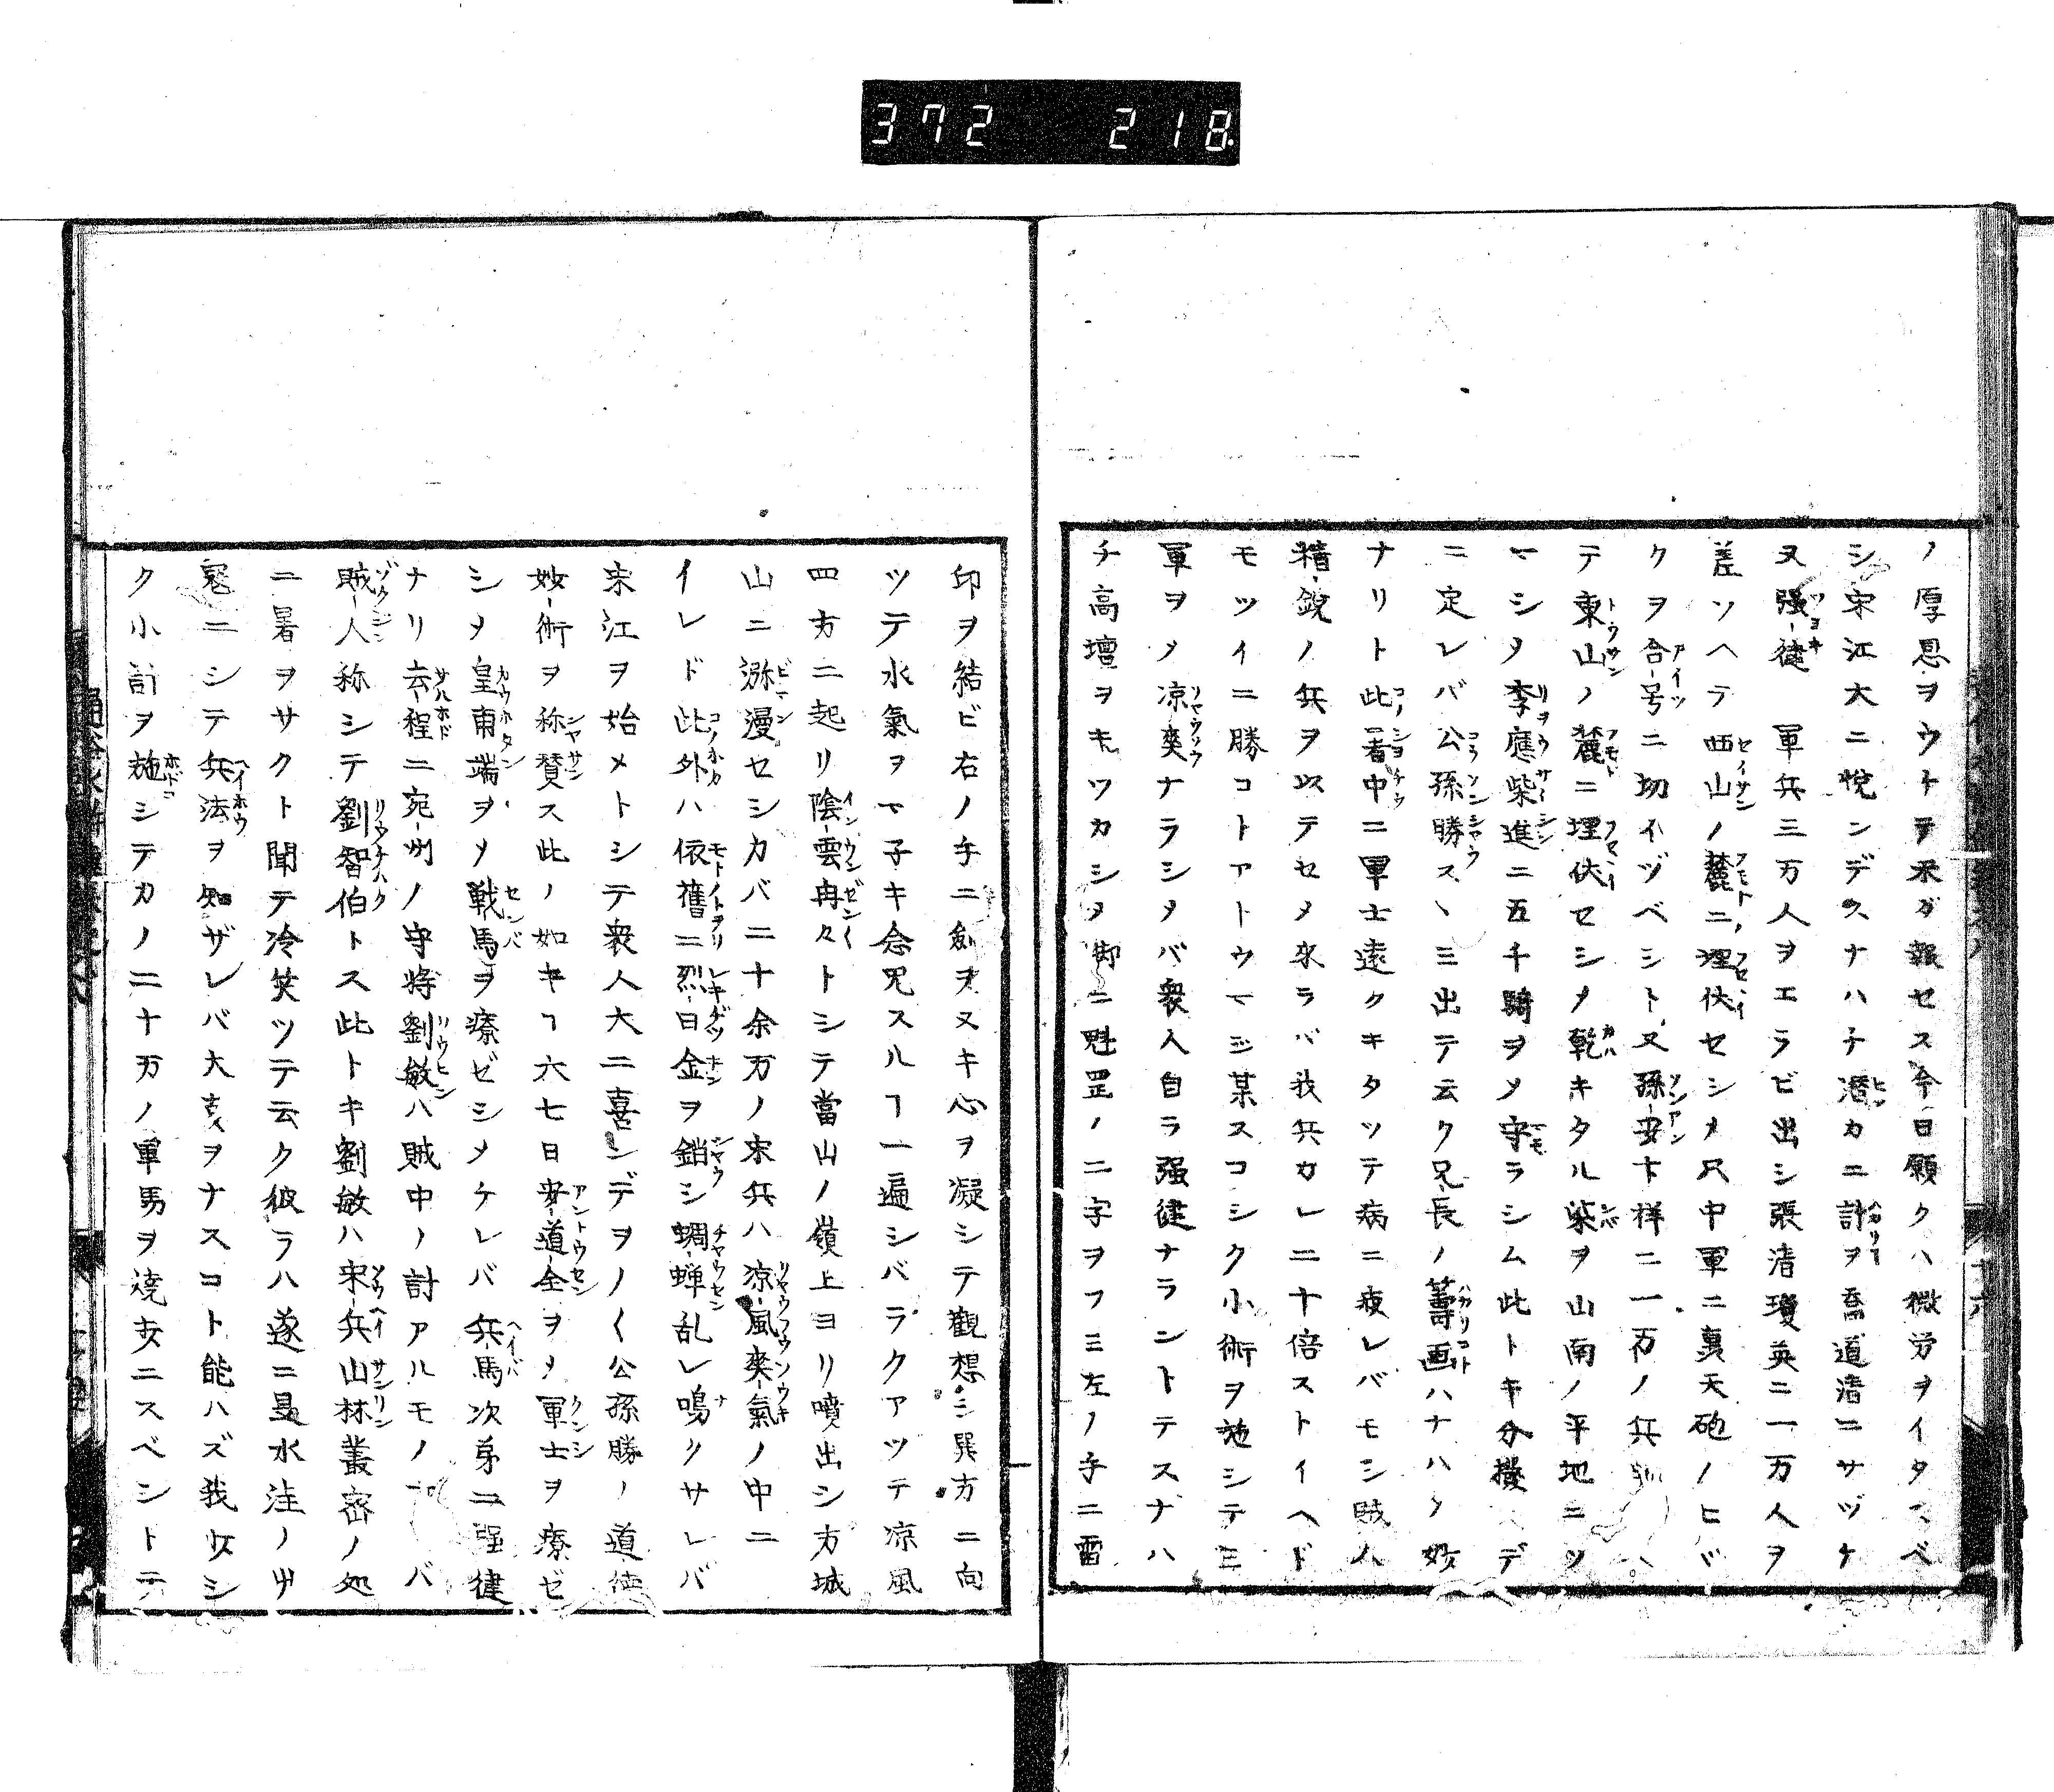 372 218
ノ厚恩ヲウケテ未ダ報セス今日願クハ微労ヲイタスベ
シ宋江大ニ悦ンデスナハチ潜カニ計ヲ喬道清ニサヅケ
又強健 軍兵三万人ヲエラビ出シ張清瓊英ニ一万人ヲ
差ソヘテ西山ノ麓ニ埋伏セシメ只中軍ニ轟天砲ノヒヾ
クヲ合号ニ切イヅベシト又孫安卞祥ニ一万ノ兵
テ東山ノ麓ニ埋伏セシメ乾キタル柴ヲ山南ノ平地ニツ
マシメ李應柴進ニ五千騎ヲメ守ラシム此トキ分撥 デ
ニ定レバ公孫勝スヽミ出テ云ク兄長ノ籌画ハナハタ妙
ナリト此暑中ニ軍士遠クキタツテ病ニ疲レバモシ賊人
精銳ノ兵ヲ以テセメ来ラバ我兵カレニ十倍ストイヘド
モツイニ勝コトアトウマジ某スコシク小術ヲ施シテ三
軍ヲメ凉爽ナラシメバ衆人自ラ强健ナラントテスナハ
チ高壇ヲキツカシメ御ニ魁罡ノ二字ヲフミ左ノ手ニ雷
印ヲ結ビ右ノ手ニ劔ヲヌキ心ヲ凝シテ觀想シ巽方ニ向
ツテ水氣ヲマ子キ念咒スルヿ一遍シバラクアツテ凉風
四方ニ起リ陰雲冉々トシテ當山ノ嶺上ヨリ噴出シ方城
山ニ瀰漫セシカバ二十余万ノ宋兵ハ凉風爽氣ノ中ニ
イレド此外ハ依舊ニ烈日金ヲ銷シ蜩蝉乱レ鳴クサレバ
宋江ヲ始メトシテ衆人大ニ喜ンデヲノ〱公孫勝ノ道德
妙術ヲ称賛ス此ノ如キヿ六七日安道全ヲメ軍士ヲ療ゼ
シメ皇甫端ヲメ戦馬ヲ療ゼシメケレバ兵馬次弟ニ强健
ナリ去程ニ宛州ノ守将劉敏ハ賊中ノ計アルモノ バ
賊人称シテ劉智伯トス此トキ劉敏ハ宋兵山林叢密ノ処
ニ暑ヲサクト聞テ冷笑ツテ云ク彼ラハ遂ニ是水洼ノ艸
寇ニシテ兵法ヲ知ザレバ大支ヲナスコト能ハズ我少シ
ク小計ヲ施シテカノ二十万ノ軍馬ヲ焼
ニスベシトテ